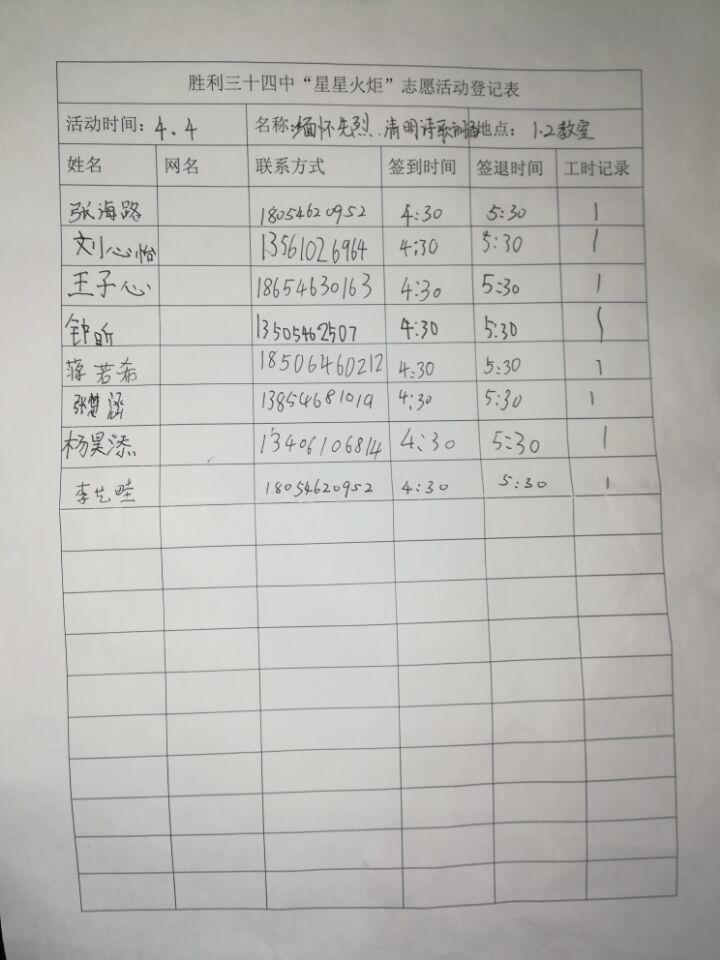 胜利三十四中“星星火炬”志愿活动登记表
活动时间：4.4 名称：缅怀先烈.清明诗歌朗诵 地点：1.2教室
姓名 网名 联系方式 签到时间 签退时间 工时记录
张海路 18054620952 4:30 5:30 1
刘心怡 13561026964 4:30 5:30 1
王子心 18654630163 4:30 5:30 1
钟昕 13505462507 4:30 5:30 1
蒋若希 18506460212 4:30 5:30 1
张梦涵 13854681019 4:30 5:30 1
杨昊添 13406106814 4:30 5:30 1
李艺畦 18054620952 4:30 5:30 1